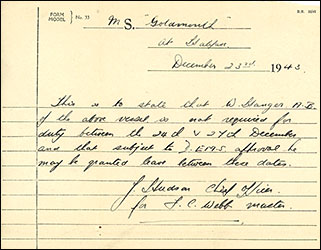 FORM MODEL } No. 33
M.S. "Goldmouth"
at Halifax
December 23rd 1943
This is to state that W. Stanger A.B.
of the above vessel is not required for
duty between the 24th & 27th December
and that subject to D.E.M.S. approval he
may be granted leave between these dates.
J Hudson Chief Officer.
for F. C. Webb master.